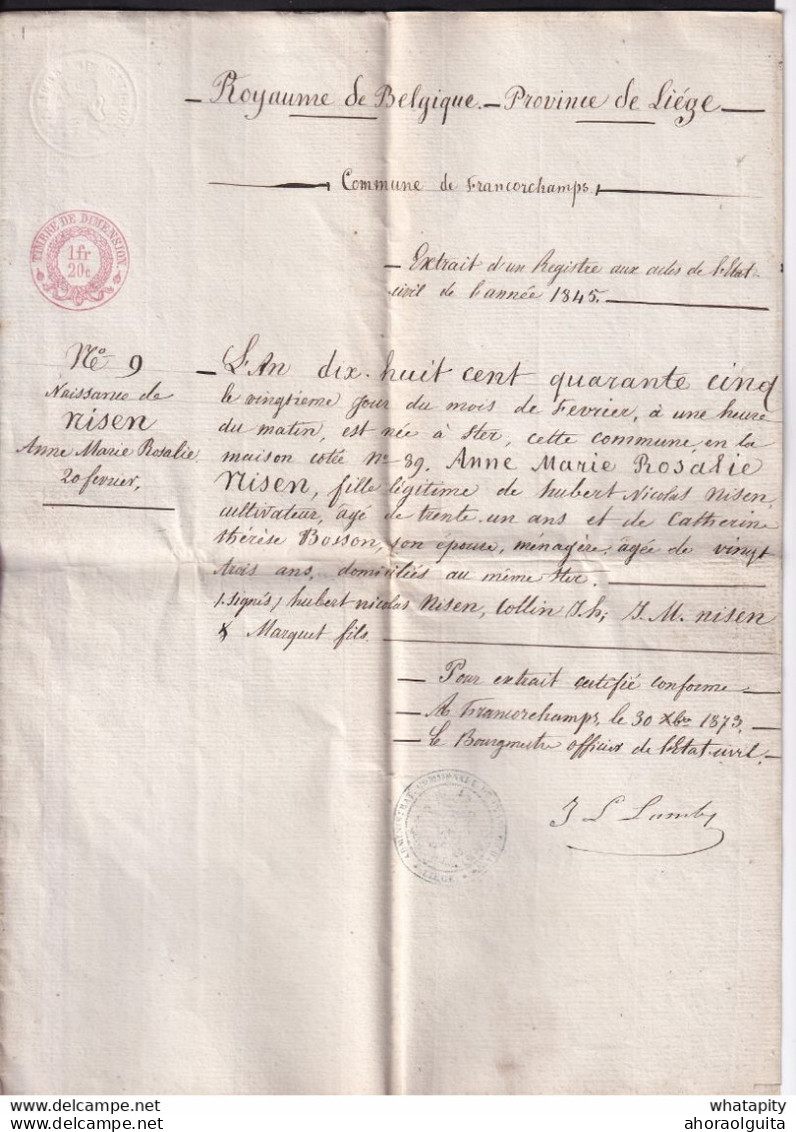 Royaume de Belgique. - Province de Liége
Commune de Francorchamps.
TIMBRE DE DIMENSION
1fr
20c
Extrait d'un Registre aux actes de l'Etat-
civil de l'année 1845.
No 9
Naissance de
Nisen
Anne Marie Rosalie
20 fevrier,
L'An dix-huit cent quarante cinq
le vingtième jour du mois de Fevrier, à une heure
du matin, est née à Ster, cette commune en la
maison cotée No 89. Anne Marie Rosalie
Nisen, fille légitime de hubert Nicolas Nisen,
cultivateur, agé de trente un ans et de Catherine
thérèse Bosson, son épouse, ménagère, agée de vingt
trois ans, domiciliés au même Ster.
(signés) hubert nicolas Nisen, Collin J. h; J. M. nisen
& Marquet fils.
Pour extrait certifié conforme
A Francorchamps, le 30 Xbre 1873.
Le Bourgmestre officier de l'Etat-civil.
ADMINISTRAT. COMMUNALE DE
LIEGE
J L Lamby
whatapity
ahoraolguita